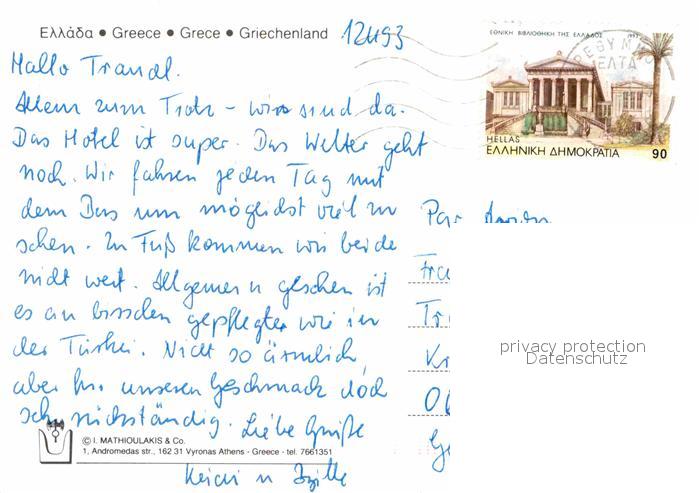 Ελλάδα • Greece • Grece • Griechenland
ΕΘΝΙΚΗ ΒΙΒΛΙΟΘΗΚΗ ΤΗΣ ΕΛΛΑΔΟΣ 1993
ΡΕΘΥΜΝΟ
ΕΛΤΑ
HELLAS
ΕΛΛΗΝΙΚΗ ΔΗΜΟΚΡΑΤΙΑ 90
Hallo Traudl.
Allem zum Trotz - wir sind da.
Das Hotel ist super. Das Wetter geht
noch. Wir fahren jeden Tag mit
dem Bus um möglichst viel zu
sehen. Zu Fuß kommen wir beide
nicht weit. Allgemein gesehen ist
es ein bisschen gepflegter wie in
der Türkei. Nicht so ärmlich
aber für unseren Geschmack doch
sehr rückständig. Liebe Grüße
Par
Fra
Tr
Kr
Ob
privacy protection
Datenschutz
© I. MATHIOULAKIS & Co.
1, Andromedas str., 162 31 Vyronas Athens - Greece - tel. 7661351